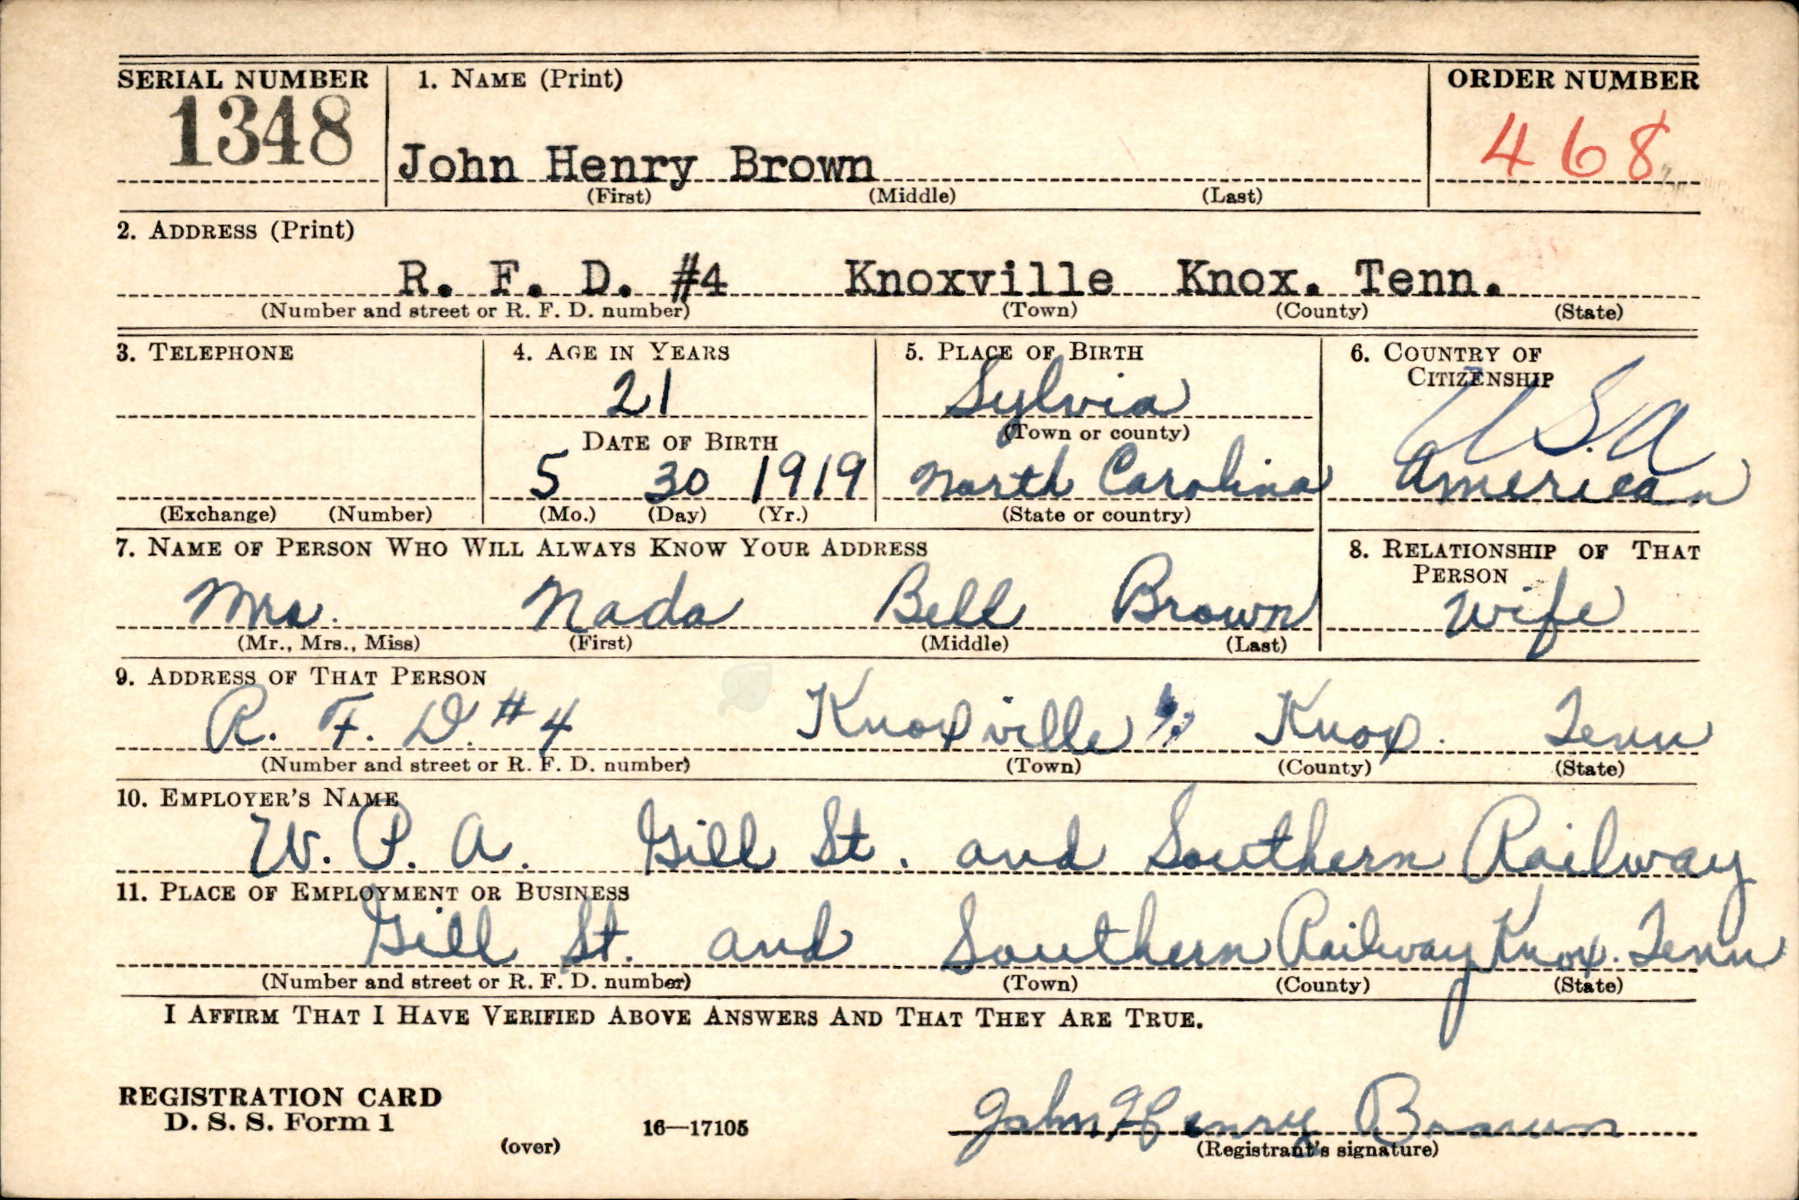 SERIAL NUMBER 1. NAME (Print) ORDER NUMBER
1348 John Henry Brown 468
(First) (Middle) (Last)
2. ADDRESS (Print)
R. F. D. #4 Knoxville Knox. Tenn.
(Number and street or R. F. D. number) (Town) (County) (State)
3. TELEPHONE 4. AGE IN YEARS 5. PLACE OF BIRTH 6. COUNTRY OF CITIZENSHIP
21 Sylvia U.S.A
DATE OF BIRTH (Town or county)
5 30 1919 North Carolina American
(Exchange) (Number) (Mo.) (Day) (Yr.) (State or country)
7. NAME OF PERSON WHO WILL ALWAYS KNOW YOUR ADDRESS 8. RELATIONSHIP OF THAT PERSON
Mrs. Nada Bell Brown Wife
(Mr., Mrs., Miss) (First) (Middle) (Last)
9. ADDRESS OF THAT PERSON
R. F. D. #4 Knoxville Knox. Tenn
(Number and street or R. F. D. number) (Town) (County) (State)
10. EMPLOYER'S NAME
W. P. A. Gill St. and Southern Railway
11. PLACE OF EMPLOYMENT OR BUSINESS
Gill St. and Southern Railway Knox. Tenn
(Number and street or R. F. D. number) (Town) (County) (State)
I AFFIRM THAT I HAVE VERIFIED ABOVE ANSWERS AND THAT THEY ARE TRUE.
REGISTRATION CARD
D. S. S. Form 1 John Henry Brown
(over) 16—17105 (Registrant's signature)